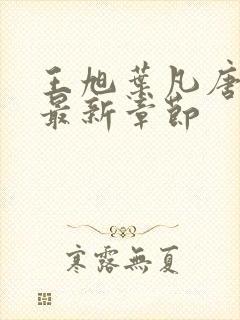 王旭葉凡唐
最新章節
寒露無夏